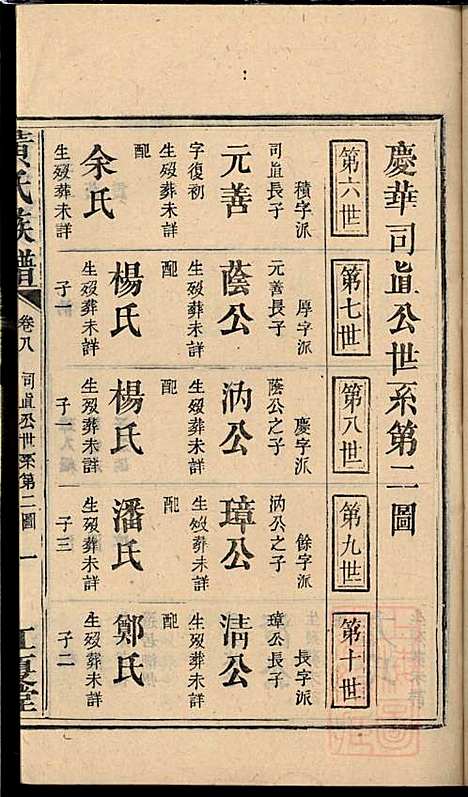 慶華司直公世系第二圖
第六世
積字派
司直長子
元善
字復初
生歿葬未詳
配
余氏
生歿葬未詳
第七世
厚字派
元善長子
蔭公
生歿葬未詳
配
楊氏
生歿葬未詳
子一
第八世
慶字派
蔭公之子
汭公
生歿葬未詳
配
楊氏
生歿葬未詳
子一
第九世
餘字派
汭公之子
璋公
生歿葬未詳
配
潘氏
生歿葬未詳
子三
第十世
長字派
璋公長子
清公
生歿葬未詳
配
鄭氏
生歿葬未詳
子二
黃氏族譜
卷八
司直公世系第二圖
一
江夏堂